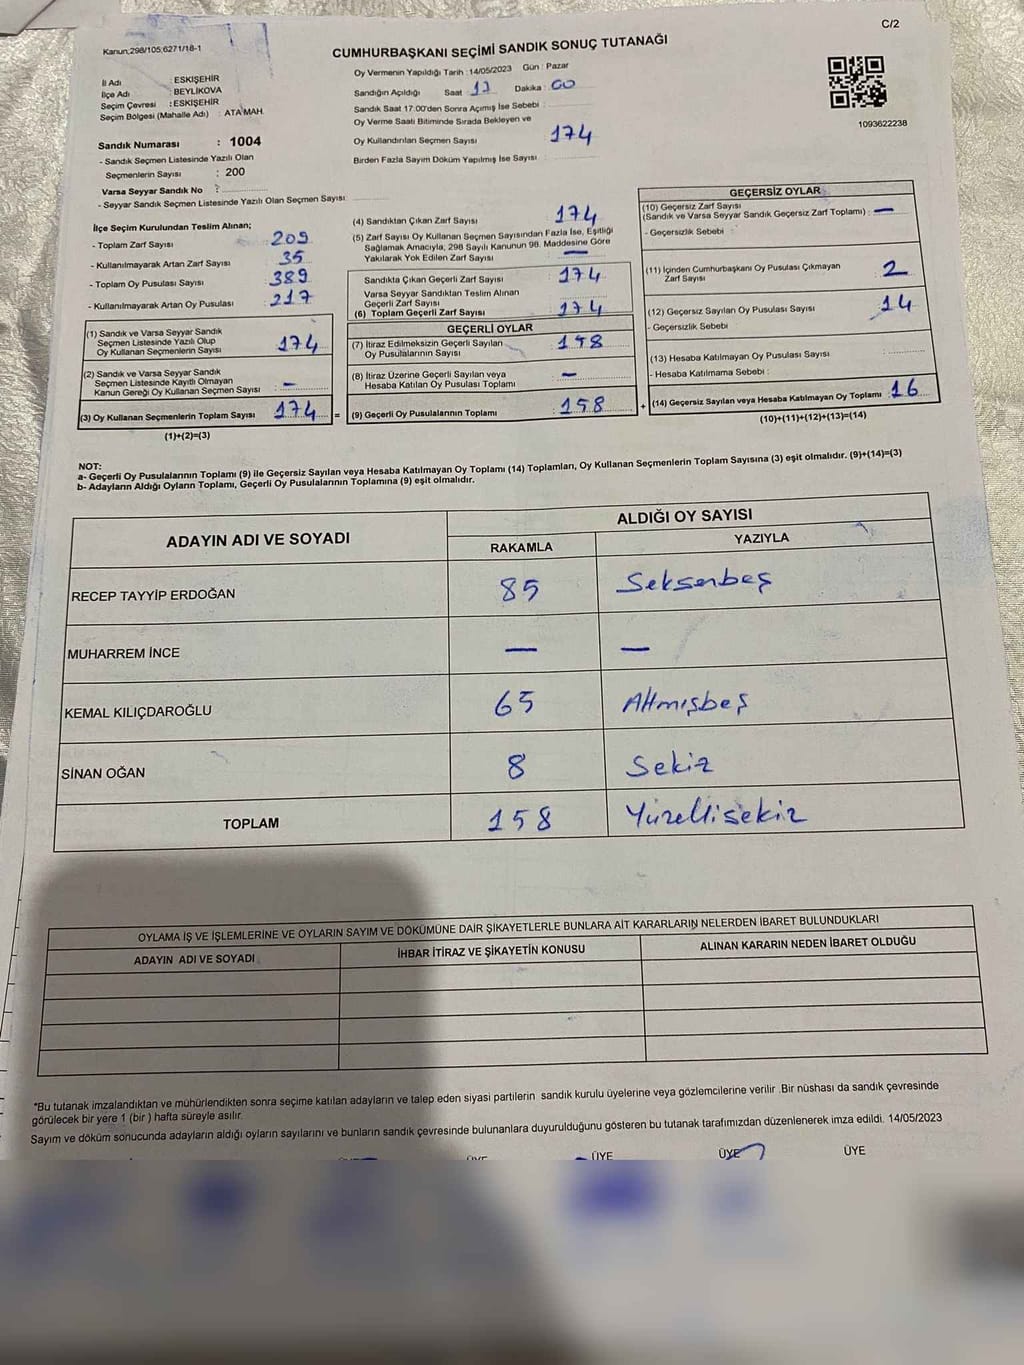 C/2
Kanun;298/105;6271/18-1
CUMHURBAŞKANI SEÇİMİ SANDIK SONUÇ TUTANAĞI
İl Adı : ESKİŞEHİR
İlçe Adı : BEYLİKOVA
Seçim Çevresi : ESKİŞEHİR
Seçim Bölgesi (Mahalle Adı) : ATA MAH.
Sandık Numarası : 1004
- Sandık Seçmen Listesinde Yazılı Olan
Seçmenlerin Sayısı : 200
Varsa Seyyar Sandık No :
- Seyyar Sandık Seçmen Listesinde Yazılı Olan Seçmen Sayısı:
Oy Vermenin Yapıldığı Tarih :14/05/2023 Gün : Pazar
Sandığın Açıldığı Saat 17 Dakika : 00
Sandık Saat 17:00'den Sonra Açımış İse Sebebi :
Oy Verme Saati Bitiminde Sırada Bekleyen ve
Oy Kullandırılan Seçmen Sayısı 174
Birden Fazla Sayım Döküm Yapılmış İse Sayısı :
1093622238
İlçe Seçim Kurulundan Teslim Alınan;
- Toplam Zarf Sayısı 209
- Kullanılmayarak Artan Zarf Sayısı 35
- Toplam Oy Pusulası Sayısı 389
- Kullanılmayarak Artan Oy Pusulası 217
(1) Sandık ve Varsa Seyyar Sandık
Seçmen Listesinde Yazılı Olup
Oy Kullanan Seçmenlerin Sayısı 174
(2) Sandık ve Varsa Seyyar Sandık
Seçmen Listesinde Kayıtlı Olmayan
Kanun Gereği Oy Kullanan Seçmen Sayısı : –
(3) Oy Kullanan Seçmenlerin Toplam Sayısı 174 =
(1)+(2)=(3)
(4) Sandıktan Çıkan Zarf Sayısı 174
(5) Zarf Sayısı Oy Kullanan Seçmen Sayısından Fazla İse, Eşitliği
Sağlamak Amacıyla, 298 Sayılı Kanunun 98. Maddesine Göre
Yakılarak Yok Edilen Zarf Sayısı : —
Sandıkta Çıkan Geçerli Zarf Sayısı : 174
Varsa Seyyar Sandıktan Teslim Alınan
Geçerli Zarf Sayısı
(6) Toplam Geçerli Zarf Sayısı : 174
GEÇERLİ OYLAR
(7) İtiraz Edilmeksizin Geçerli Sayılan
Oy Pusulalarının Sayısı : 158
(8) İtiraz Üzerine Geçerli Sayılan veya
Hesaba Katılan Oy Pusulası Toplamı : –
(9) Geçerli Oy Pusulalarının Toplamı : 158 +
GEÇERSİZ OYLAR
(10) Geçersiz Zarf Sayısı
(Sandık ve Varsa Seyyar Sandık Geçersiz Zarf Toplamı) : —
- Geçersizlik Sebebi :
(11) İçinden Cumhurbaşkanı Oy Pusulası Çıkmayan
Zarf Sayısı 2
(12) Geçersiz Sayılan Oy Pusulası Sayısı 14
- Geçersizlik Sebebi
(13) Hesaba Katılmayan Oy Pusulası Sayısı
- Hesaba Katılmama Sebebi :
(14) Geçersiz Sayılan veya Hesaba Katılmayan Oy Toplamı : 16
(10)+(11)+(12)+(13)=(14)
NOT:
a- Geçerli Oy Pusulalarının Toplamı (9) ile Geçersiz Sayılan veya Hesaba Katılmayan Oy Toplamı (14) Toplamları, Oy Kullanan Seçmenlerin Toplam Sayısına (3) eşit olmalıdır. (9)+(14)=(3)
b- Adayların Aldığı Oyların Toplamı, Geçerli Oy Pusulalarının Toplamına (9) eşit olmalıdır.
ADAYIN ADI VE SOYADI
ALDIĞI OY SAYISI
RAKAMLA YAZIYLA
RECEP TAYYİP ERDOĞAN 85 Seksenbeş
MUHARREM İNCE — —
KEMAL KILIÇDAROĞLU 65 Altmışbeş
SİNAN OĞAN 8 Sekiz
TOPLAM 158 Yüzellisekiz
OYLAMA İŞ VE İŞLEMLERİNE VE OYLARIN SAYIM VE DÖKÜMÜNE DAİR ŞİKAYETLERLE BUNLARA AİT KARARLARIN NELERDEN İBARET BULUNDUKLARI
ADAYIN ADI VE SOYADI İHBAR İTİRAZ VE ŞİKAYETİN KONUSU ALINAN KARARIN NEDEN İBARET OLDUĞU
*Bu tutanak imzalandıktan ve mühürlendikten sonra seçime katılan adayların ve talep eden siyasi partilerin sandık kurulu üyelerine veya gözlemcilerine verilir .Bir nüshası da sandık çevresinde
görülecek bir yere 1 (bir ) hafta süreyle asılır.
Sayım ve döküm sonucunda adayların aldığı oyların sayılarını ve bunların sandık çevresinde bulunanlara duyurulduğunu gösteren bu tutanak tarafımızdan düzenlenerek imza edildi. 14/05/2023
ÜYE ÜYE ÜYE